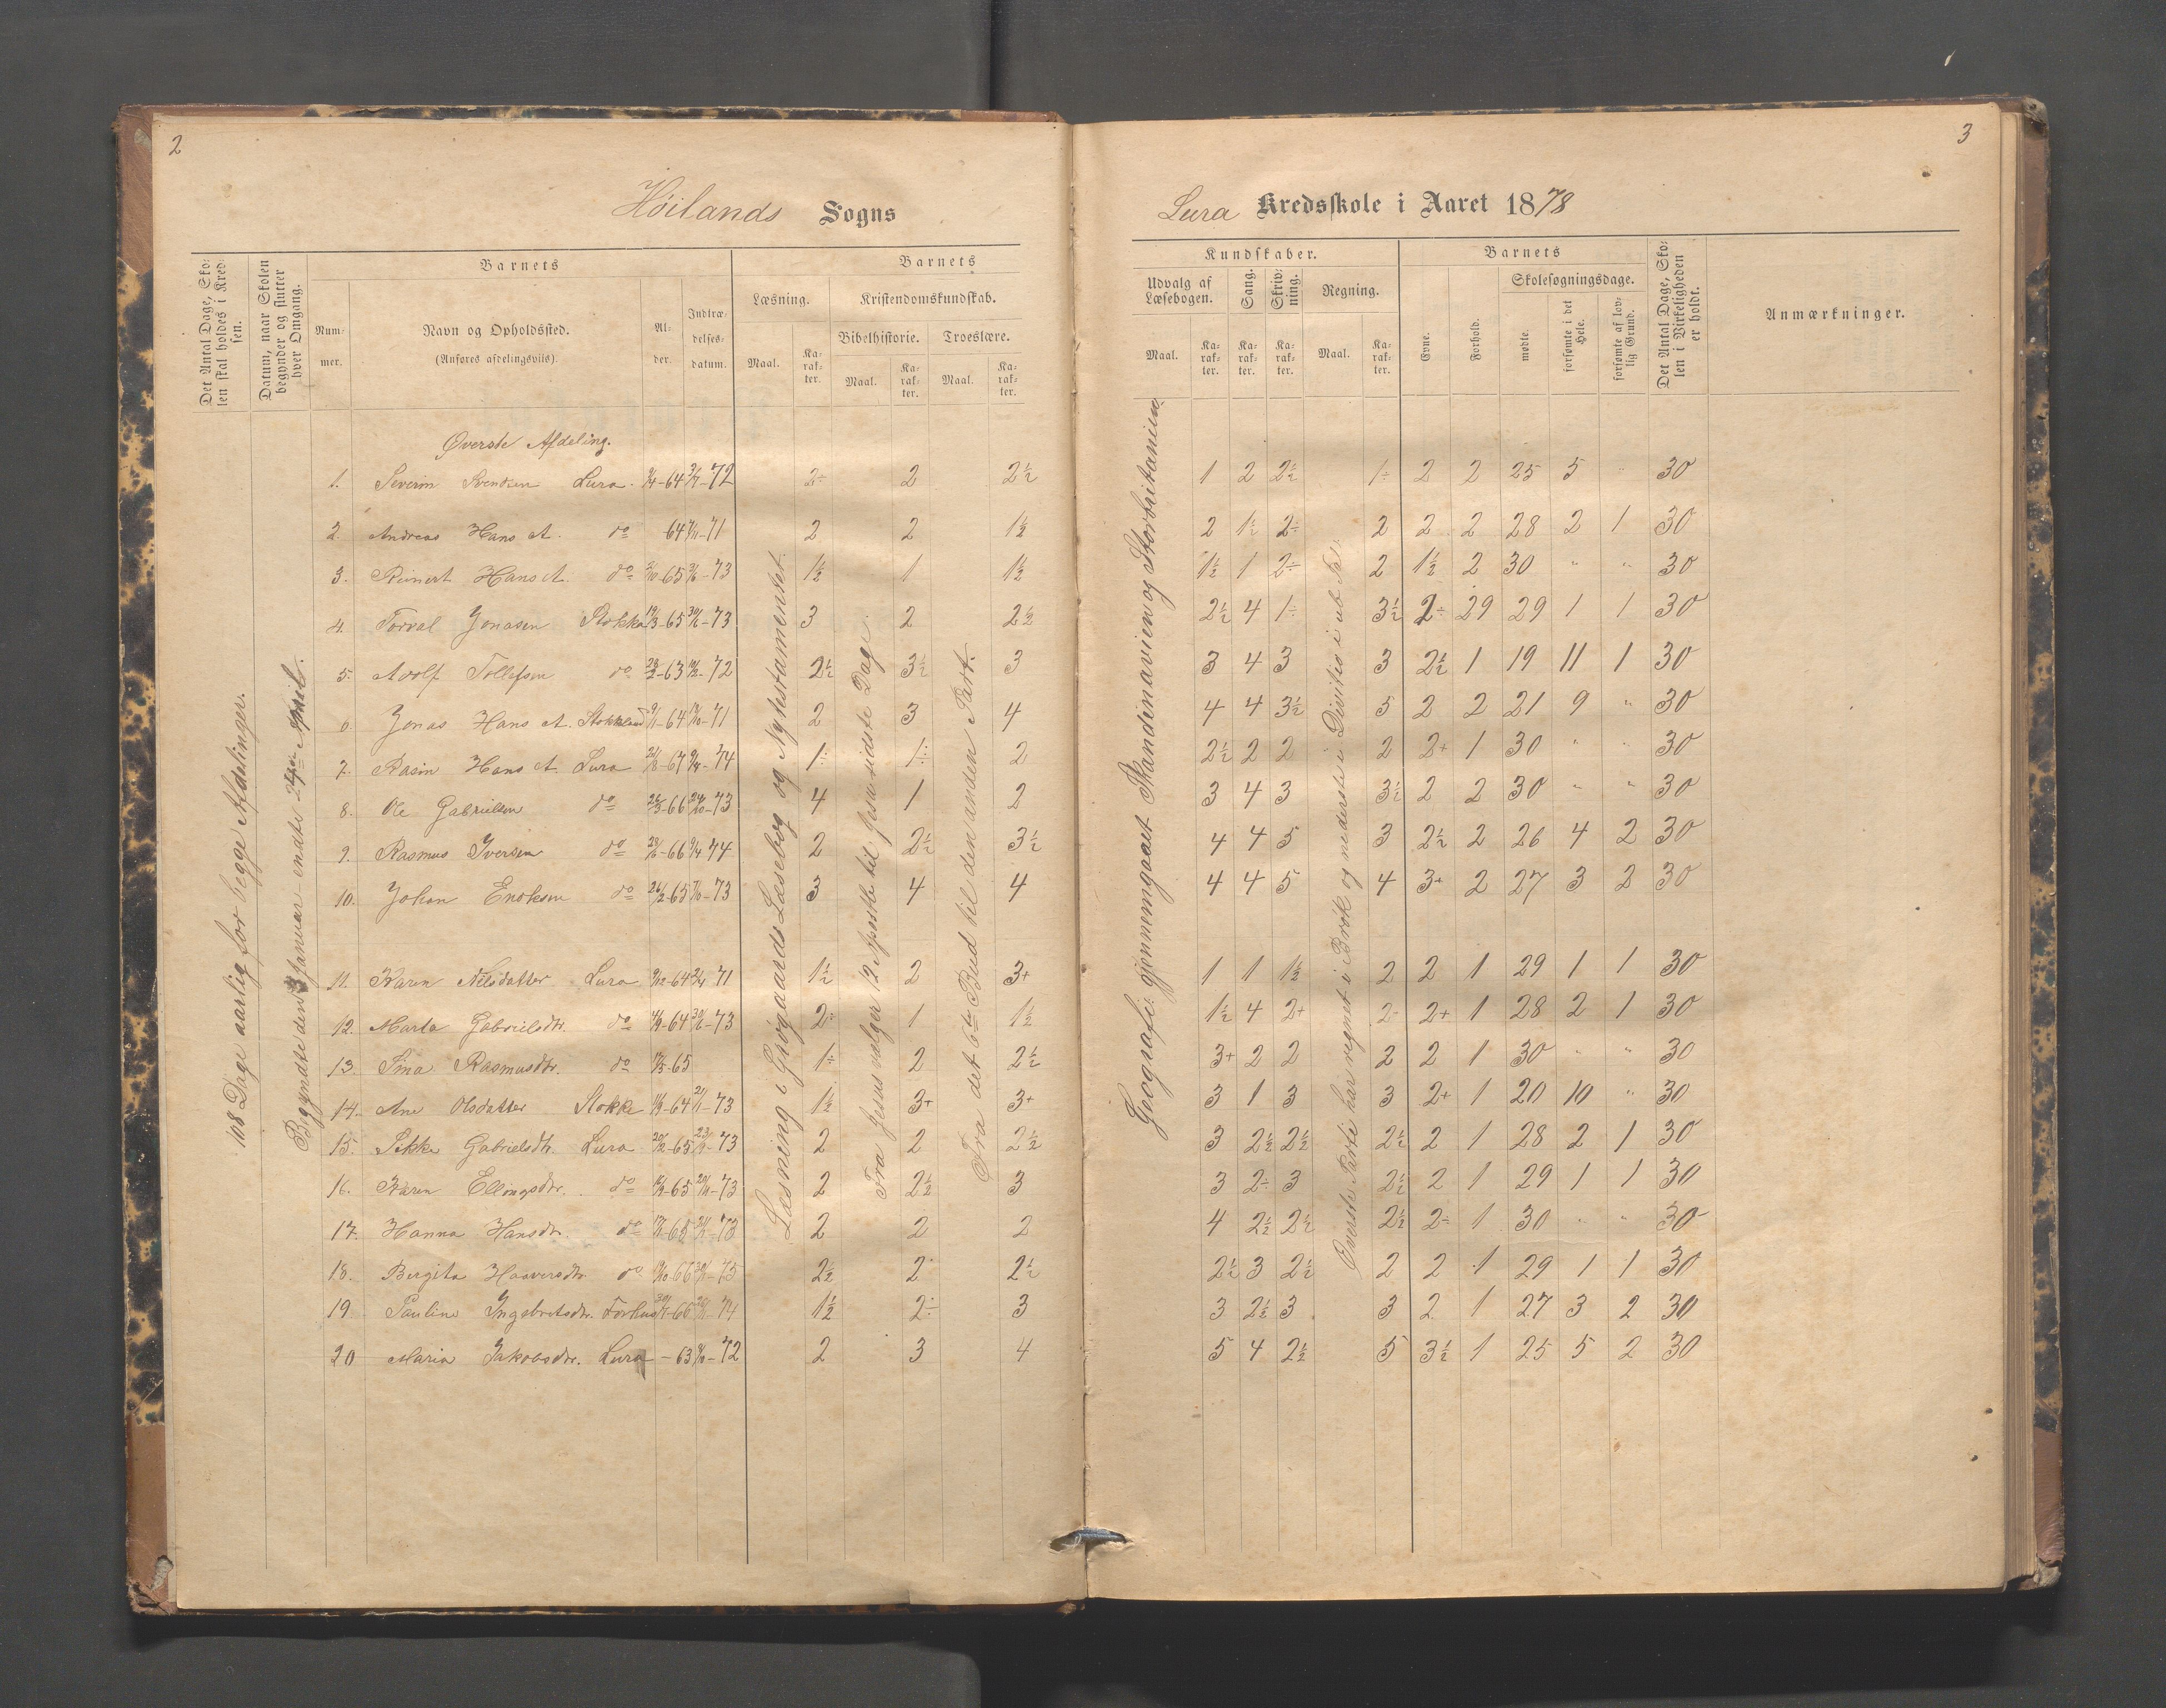 2
Høilands Sogns
Det Antal Dage, Skolen skal holdes i Kredsen.
Datum, naar Skolen begynder og slutter hver Omgang.
Barnets
Nummer.
Navn og Opholdssted.
(Anføres afdelingsviis).
Alder.
Indtrædelsesdatum.
Barnets
Læsning.
Maal.
Karakter.
Kristendomskundskab.
Bibelhistorie.
Maal.
Karakter.
Troeslære.
Maal.
Karakter.
108 Dage aarlig for begge Afdelinger.
Begyndte den 3 Januar endte
Læsning i Grøgaards Læsebog og Nytestamentet.
Fra Jesus vælger 12 Apostle til Jesu sidste Dage.
Fra det 6te Bud til den anden Part.
Øverste Afdeling.
1. Severin Svendsen Lura -64 -72 2÷ 2 2½
2. Andreas Hans A. do 64 -71 2 2 1½
3. Reinert Hans A. do -65 -73 1½ 1 1½
4. Torval Jonasen Stokka -65 -73 3 2 2½
5. Adolf Tollefsen do -63 -72 2½ 3½ 3
6. Jonas Hans A. Stokkeland -64 -71 2 3 4
7. Rasm Hans A. Lura -74 1÷ 1÷ 2
8. Ole Gabrielsen do -66 -73 4 1 2
9. Rasmus Iversen do -66 74 2 2½ 3½
10. Johan Enoksen do -65 -73 3 4 4
11. Karen Nilsdatter Lura -64 71 1½ 2 3+
12. Marta Gabrielsdtr. do -64 -73 2÷ 1 1½
13. Sina Rasmusdtr. do -65 1÷ 2 2½
14. Ane Olsdatter Stokke -64 -73 1½ 3+ 3+
15. Sikke Gabrielsdtr. Lura -65 -73 2 2 2½
16. Karen Ellingsdtr. do -65 -73 2 2½ 3
17. Hanna Hansdtr. do -65 -73 2 2 2
18. Bergita Haaversdtr. do -66 -75 2½ 2 2½
19. Pauline Ingebretsdtr. Forhus -66 -74 1½ 2÷ 3
20 Maria Jakobsdtr. Lura -63 -72 2 3 4
3
Lura Kredsskole i Aaret 1878
Kundskaber.
Udvalg af Læsebogen.
Maal.
Karakter.
Sang.
Karakter.
Skrivning.
Karakter.
Regning.
Maal.
Karakter.
Barnets
Evne.
Forhold.
Skolesøgningsdage.
mødte.
forsømte i det Hele.
forsømte af lovlig Grund.
Det Antal Dage, Skolen i Virkeligheden er holdt.
Anmærkninger.
Geografi: gjennemgaaet Skandinavien og Storbritanien.
Øverste Parti har regnet i Brøk og nederste i Divitio i ub Tal.
1 2 2½ 1÷ 2 2 25 5 " 30
2 1½ 2÷ 2 2 2 28 2 1 30
1½ 1 2÷ 2 1½ 2 30 " " 30
2½ 4 1÷ 3½ 2÷ 29 29 1 1 30
3 4 3 3 2½ 1 19 11 1 30
4 4 3½ 5 2 2 21 9 " 30
2½ 2 2 2 2+ 1 30 " " 30
3 4 3 3½ 2 2 30 " " 30
4 4 5 3 2½ 2 26 4 2 30
4 4 5 4 3+ 2 27 3 2 30
1 1 1½ 2 2 1 29 1 1 30
1½ 4 2+ 2- 2+ 1 28 2 1 30
3+ 2 2 2 2 1 30 " " 30
3 1 3 3 2+ 1 20 10 " 30
3 2½ 2½ 2½ 2 1 28 2 1 30
3 2÷ 3 2½ 2 1 29 1 1 30
4 2½ 2½ 2½ 2÷ 1 30 " " 30
2½ 3 2½ 2 2 1 29 1 1 30
3 2½ 3 3 2 1 27 3 2 30
5 4 2½ 5 3½ 1 25 5 2 30